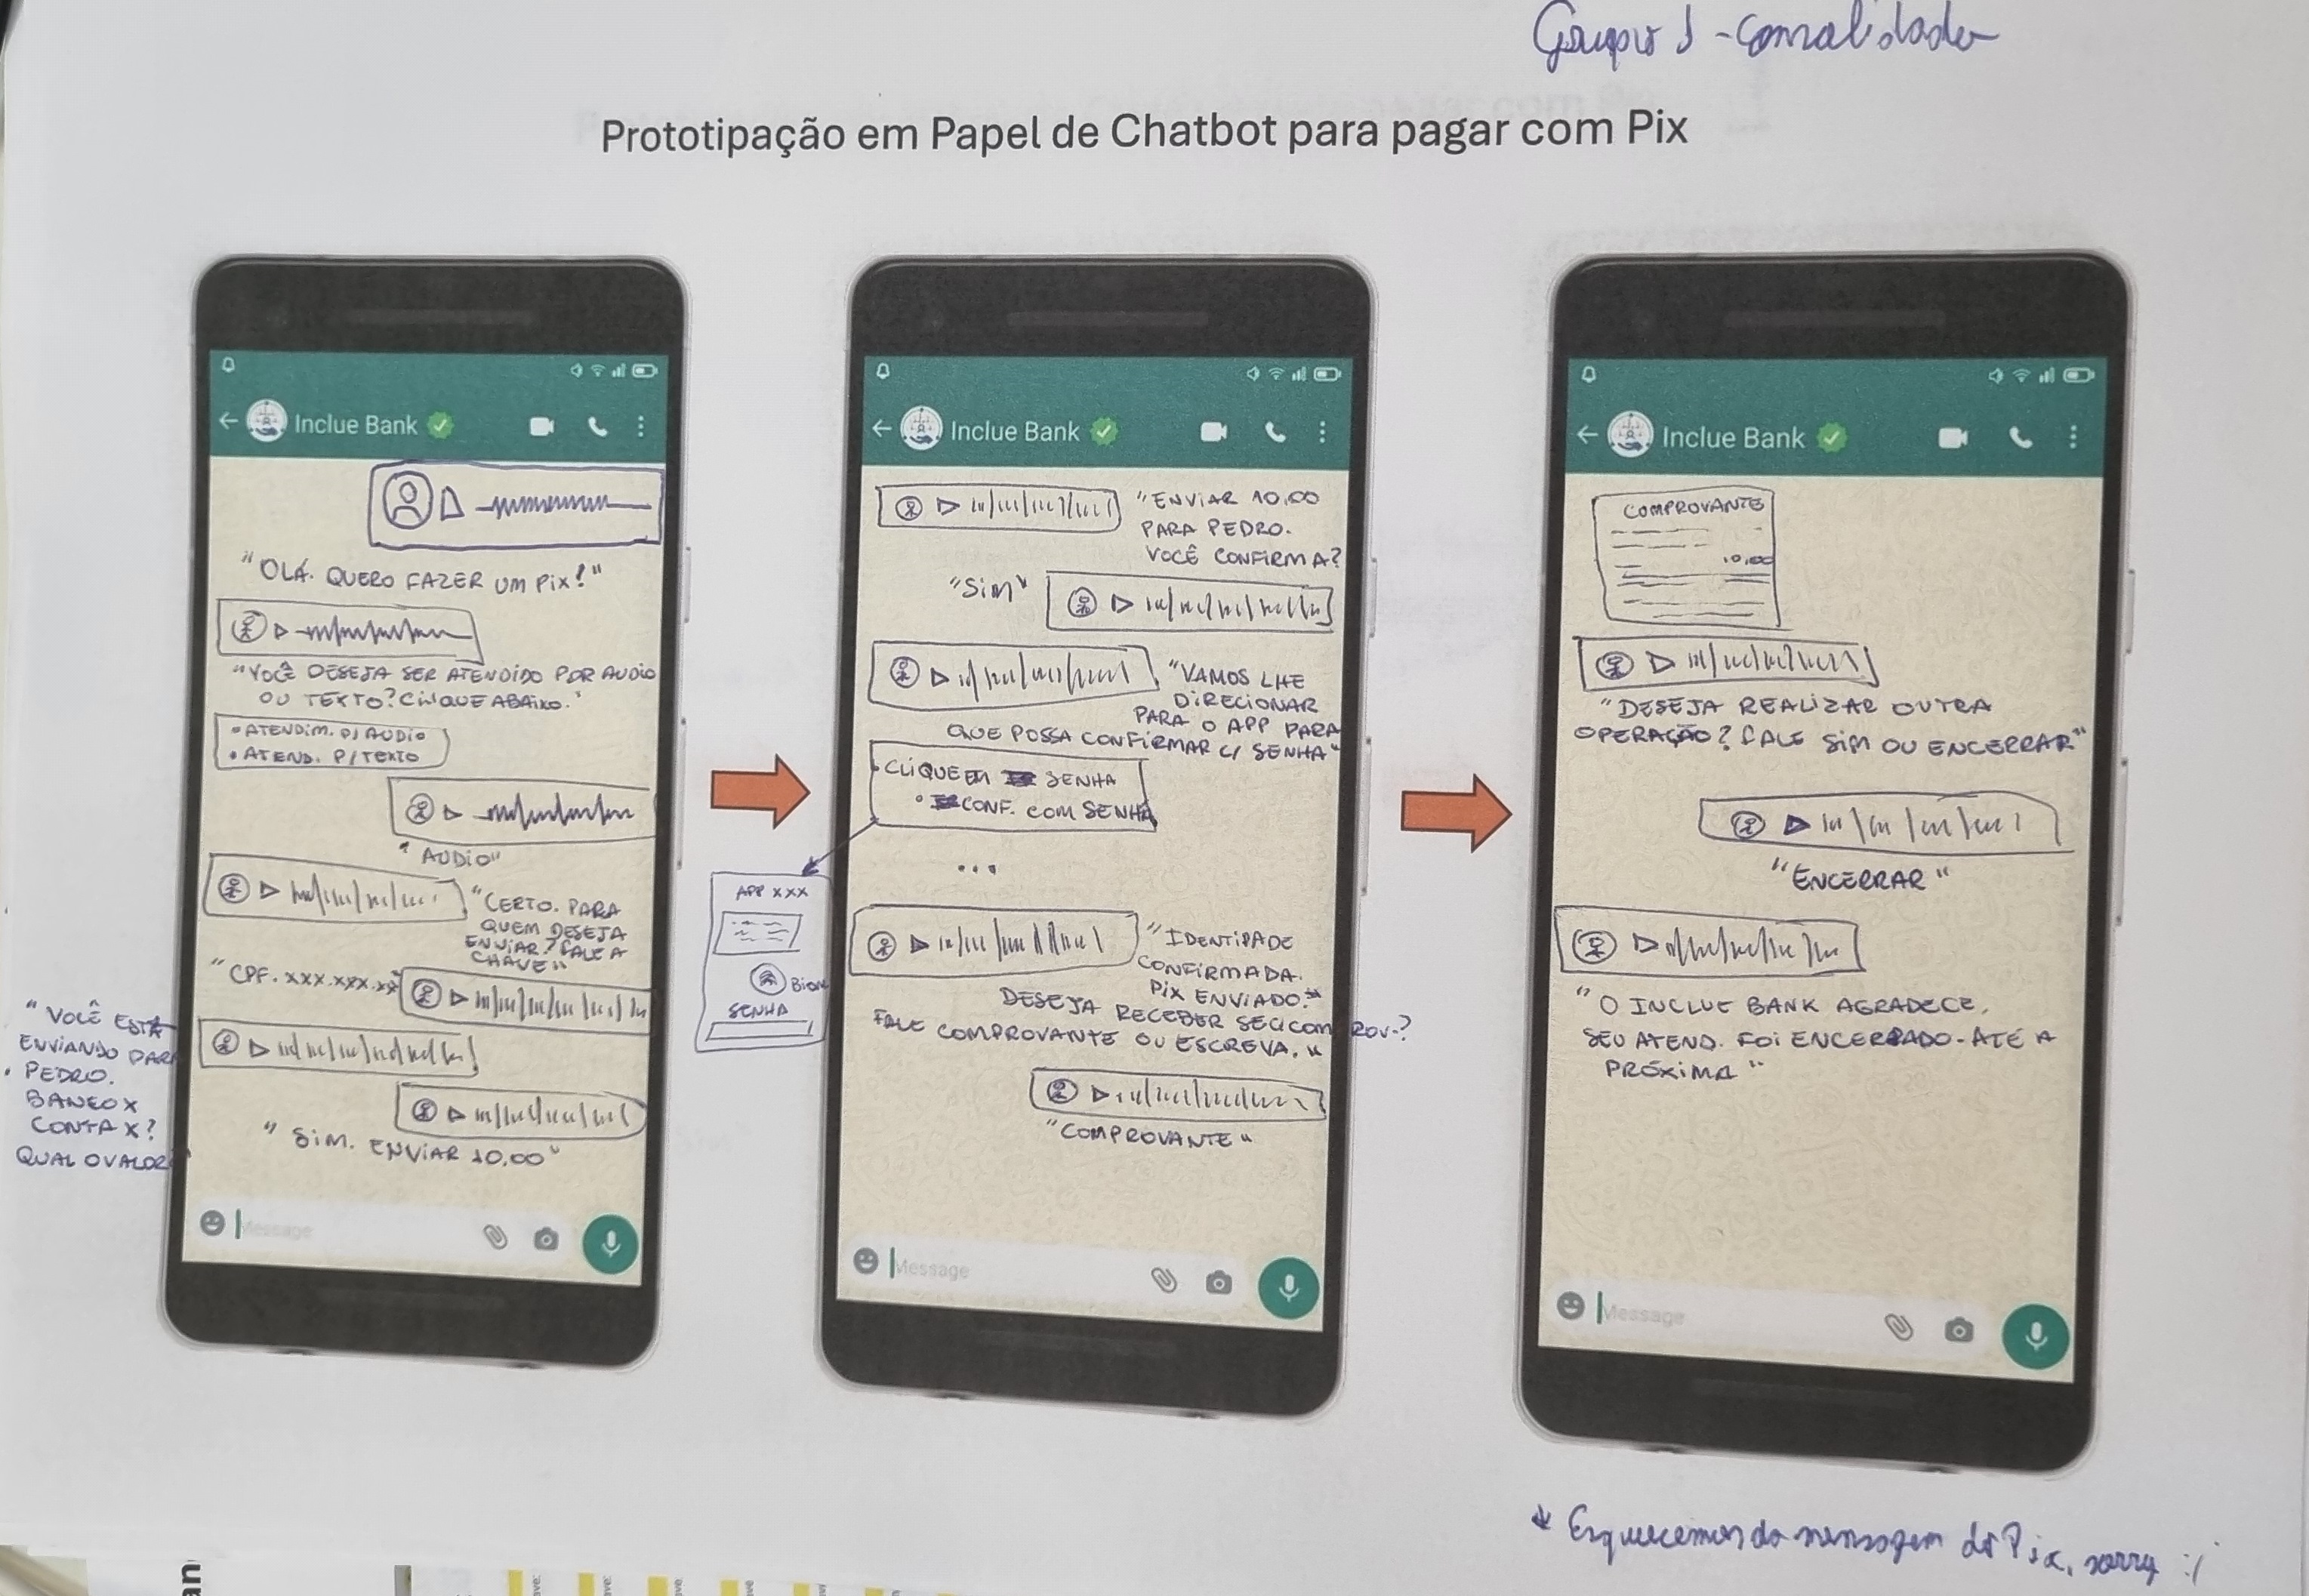 Grupo 1 - consolidador
Prototipação em Papel de Chatbot para pagar com Pix
Inclue Bank
"OLÁ. QUERO FAZER UM PIX!"
"VOCÊ DESEJA SER ATENDIDO POR AUDIO
OU TEXTO? CLIQUE ABAIXO."
• ATENDIM. P/ AUDIO
• ATEND. P/ TEXTO
"AUDIO"
"CERTO. PARA
QUEM DESEJA
ENVIAR? FALE A
CHAVE"
"CPF. xxx.xxx.xx"
"VOCÊ ESTÁ
ENVIANDO PARA
PEDRO.
BANCO X
CONTA X?
QUAL O VALOR
"SIM. ENVIAR 10,00"
Message
Inclue Bank
"ENVIAR 10,00
PARA PEDRO.
VOCÊ CONFIRMA?
"SIM"
"VAMOS LHE
DIRECIONAR
PARA O APP PARA
QUE POSSA CONFIRMAR C/ SENHA"
• CLIQUE EM SENHA
• CONF. COM SENHA
APP XXX
SENHA
...
"IDENTIDADE
CONFIRMADA.
PIX ENVIADO.
DESEJA RECEBER SEU COMPROV.?
FALE COMPROVANTE OU ESCREVA."
"COMPROVANTE"
Message
Inclue Bank
COMPROVANTE
10,00
"DESEJA REALIZAR OUTRA
OPERAÇÃO? FALE SIM OU ENCERRAR"
"ENCERRAR"
"O INCLUE BANK AGRADECE,
SEU ATEND. FOI ENCERRADO - ATÉ A
PRÓXIMA"
Message
* Esquecemos da mensagem do Pix, sorry :/
an